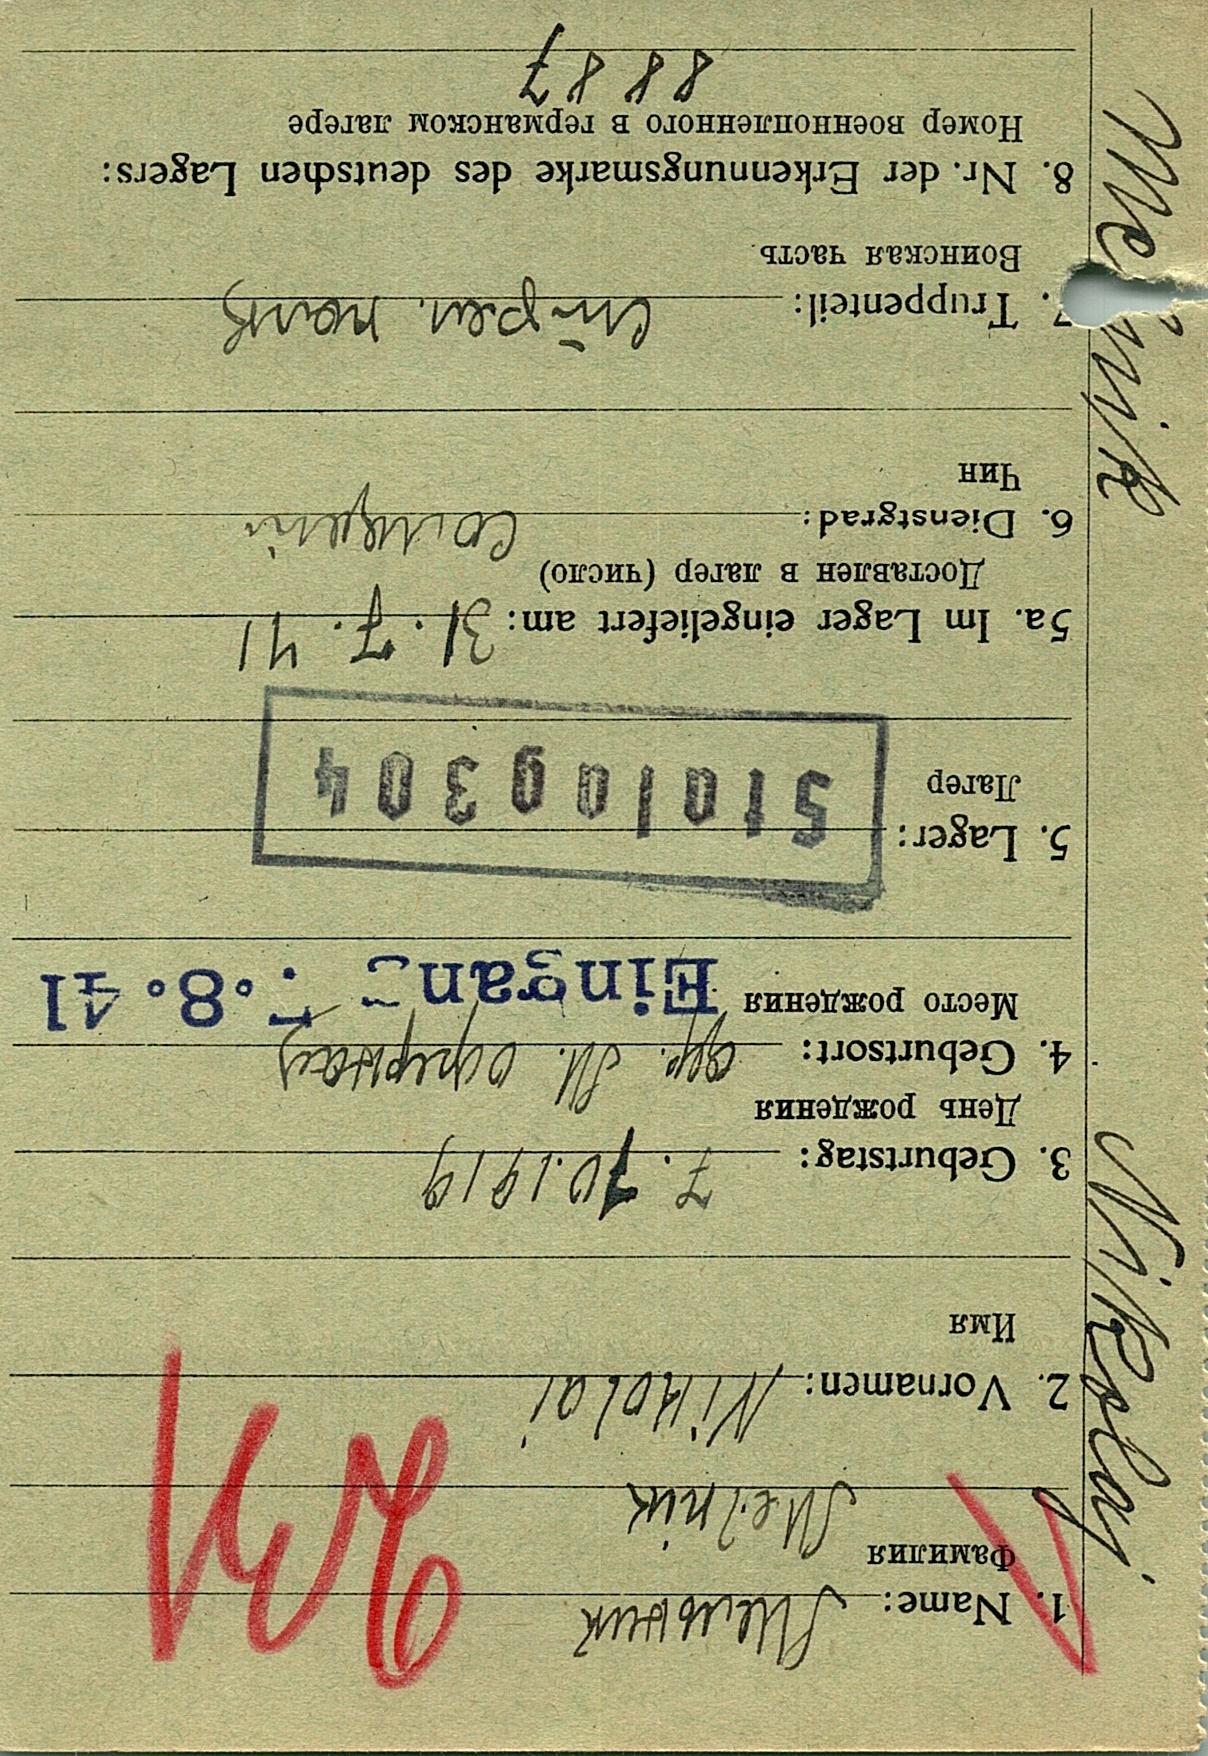 1. Name: Мельник
Фамилия
Melnik
2. Vornamen: Nikolai
Имя
3. Geburtstag: 7. 10. 1919
День рождения
4. Geburtsort:
Место рождения
Eingang 8. 41
5. Lager: Stalag 304
Лагер
5a. Im Lager eingeliefert am: 31. 7. 41
Доставлен в лагер (число)
6. Dienstgrad:
Чин
7. Truppenteil: Стрел. полк
Воинская часть
8. Nr. der Erkennungsmarke des deutschen Lagers:
Номер военнопленного в германском лагере
8887
Nikolaj Melnik